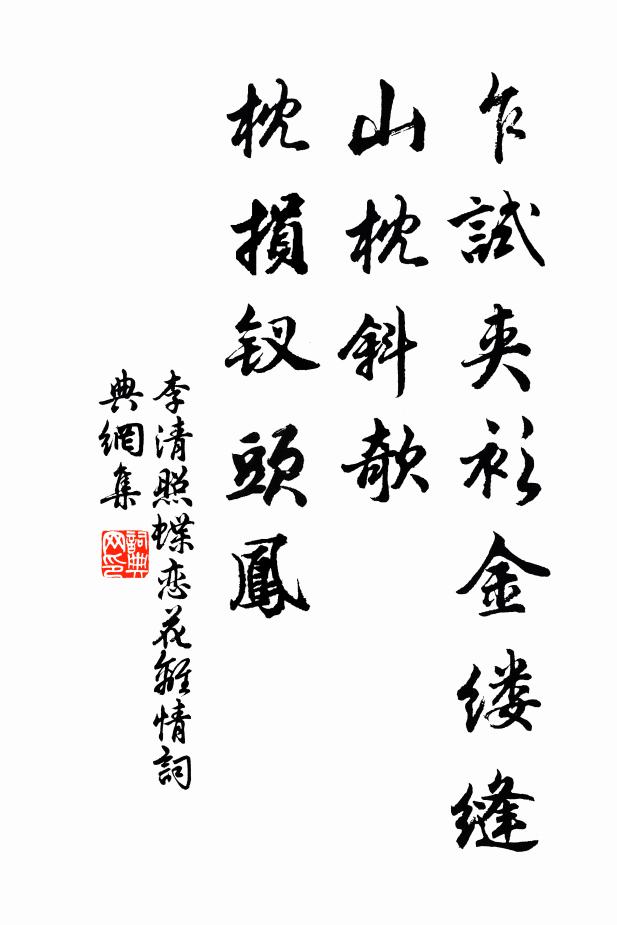 乍試夹衫金缕缝
山枕斜欹
枕損钗頭鳳
李清照蝶恋花離情詞
典網集
詞典
网印